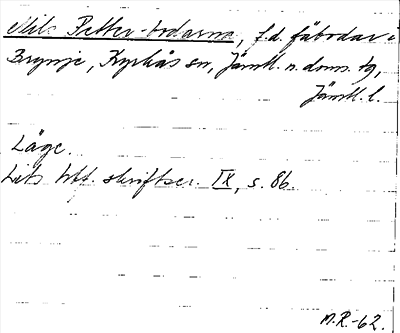 Nils Petter-bodarna, f.d. fäbodar i
Brynje, Kyrkås sn, Jämtl. n. doms. tg,
Jämtl. l.
Läge.
Lits hbf. skriftser. IX, s. 86.
M.R.-62.